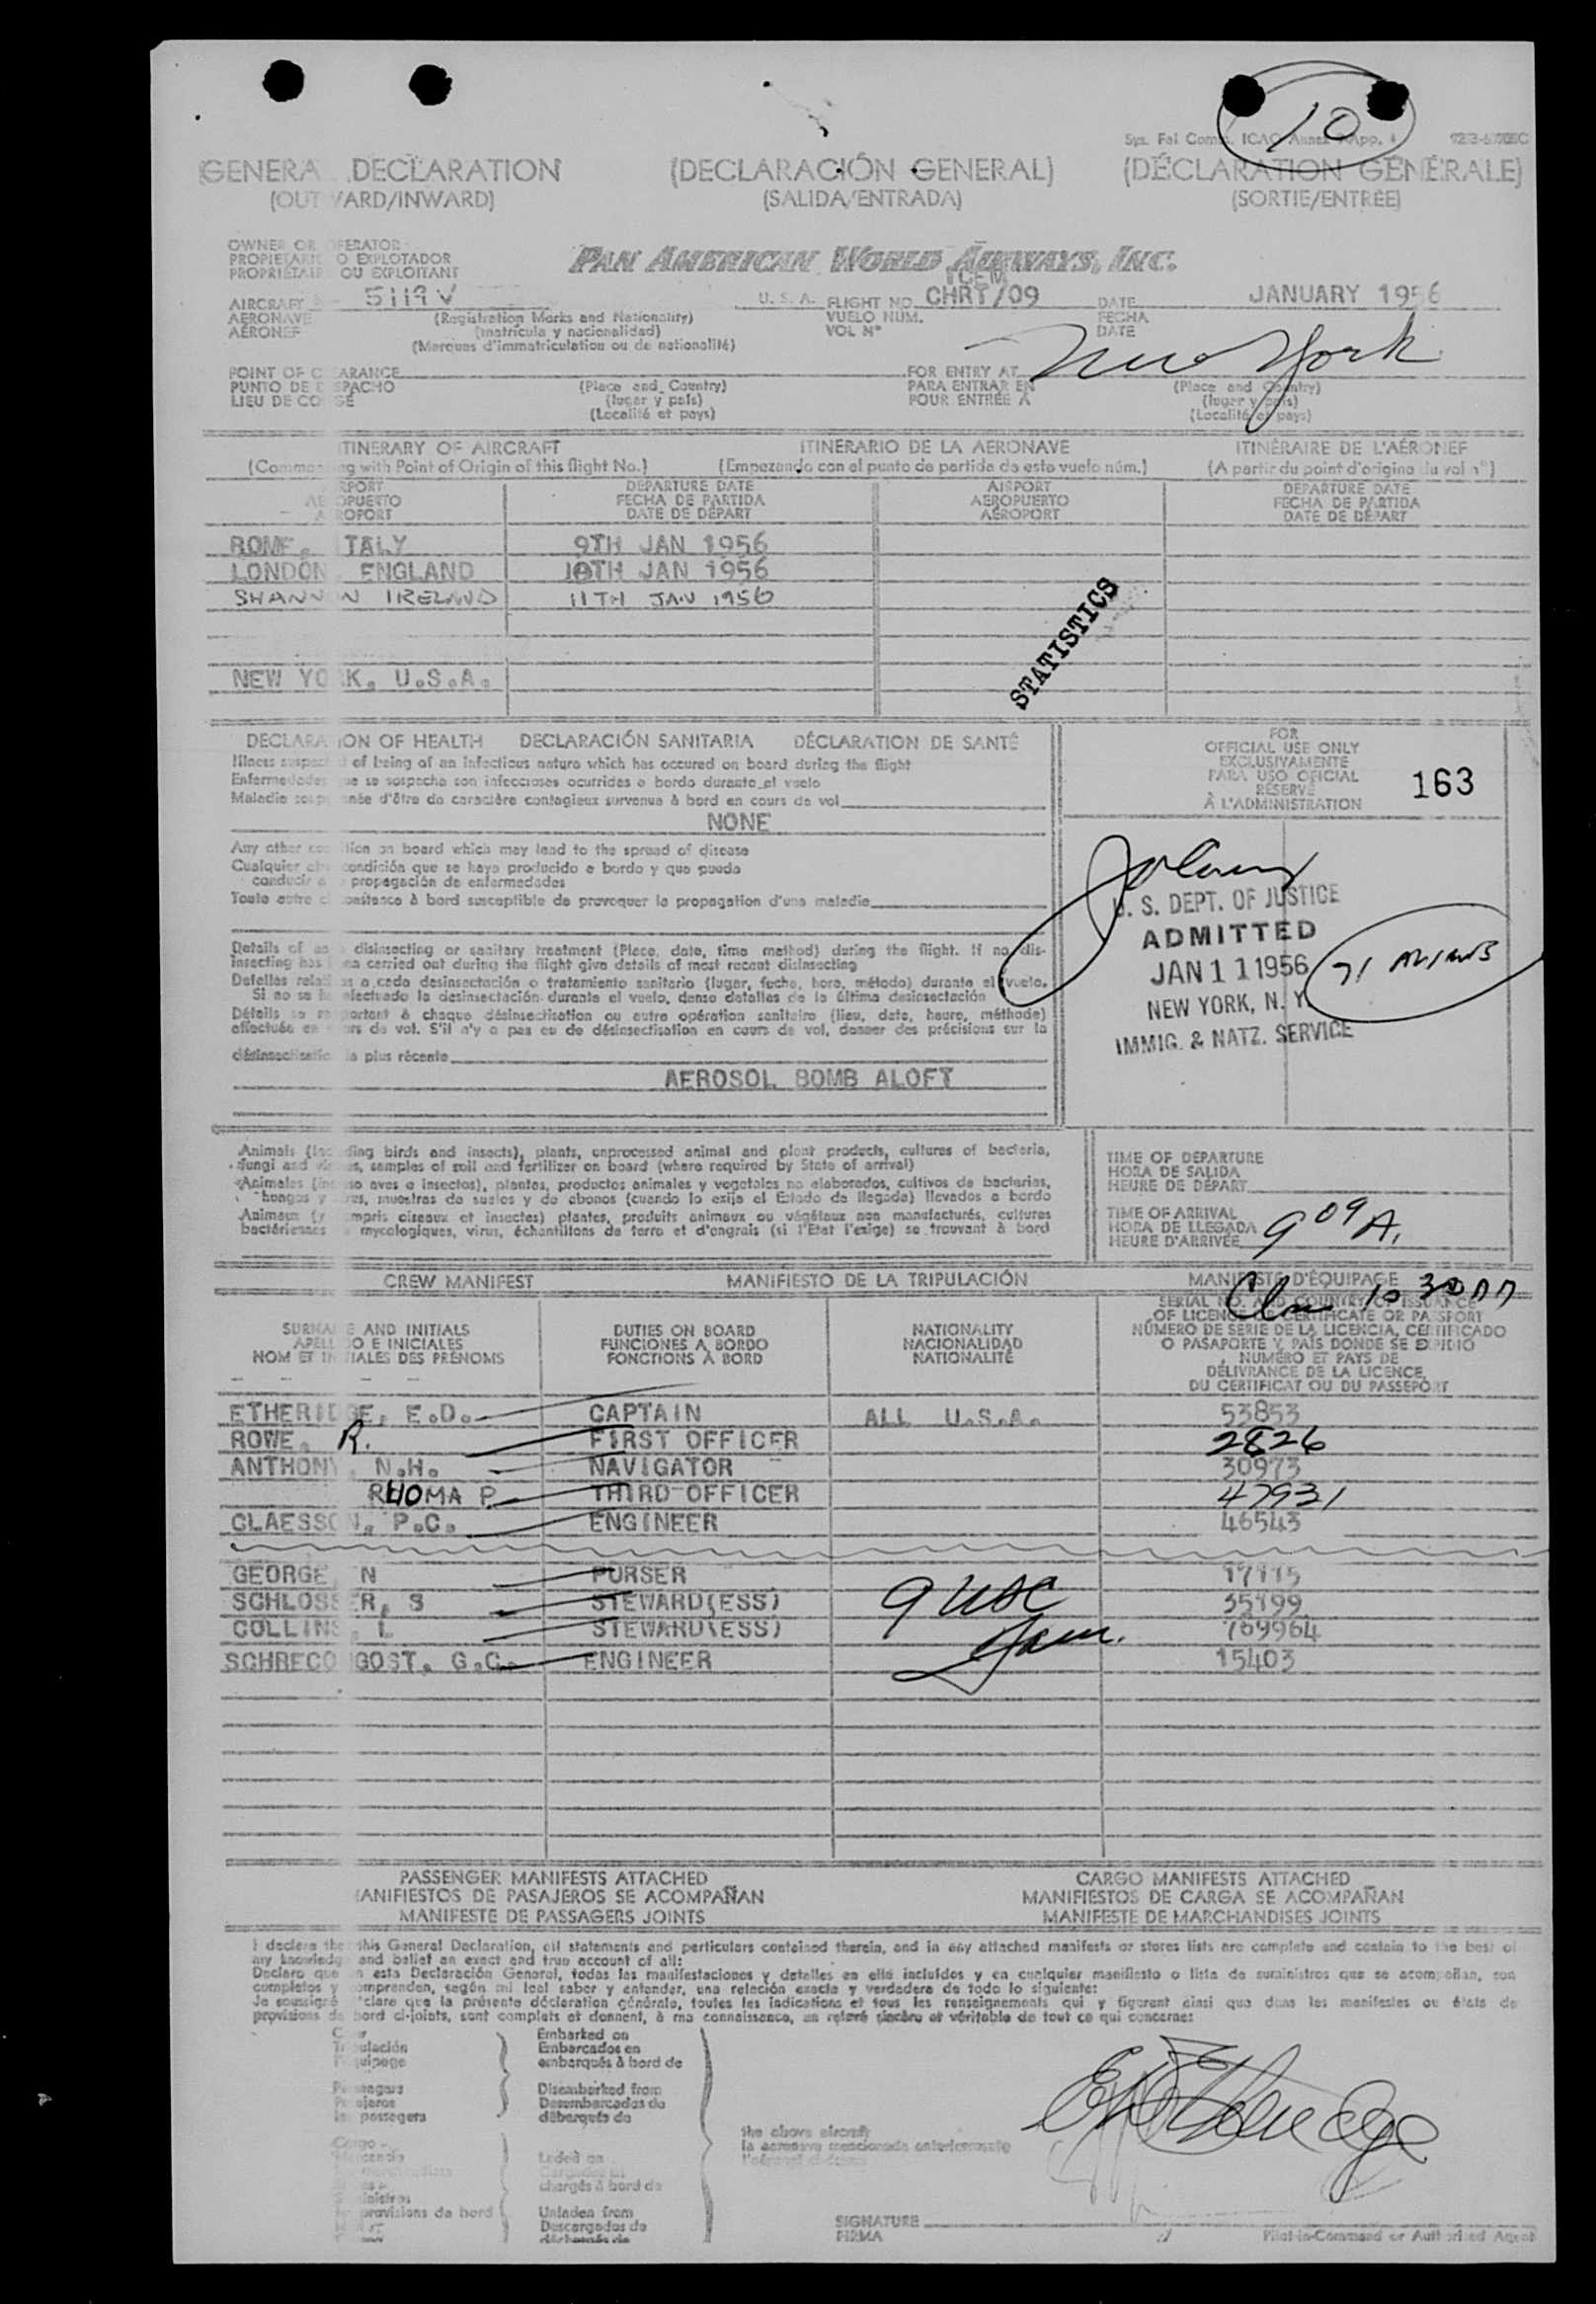 10
Sys. Fal Com. ICAO Annex App. 1
GENERA DECLARATION (DECLARACIÓN GENERAL) (DÉCLARATION GÉNÉRALE)
(OUT ARD/INWARD) (SALIDA/ENTRADA) (SORTIE/ENTRÉE)
OWNER OR OPERATOR
PROPIETARIO O EXPLOTADOR
PROPRIÉTAIRE OU EXPLOITANT
PAN AMERICAN WORLD AIRWAYS, INC.
ICEM
AIRCRAFT 5119V U. S. A. FLIGHT NO. CHRT/09 DATE JANUARY 1956
AERONAVE (Registration Marks and Nationality) VUELO NUM. FECHA
AÉRONEF (matrícula y nacionalidad) VOL Nº DATE
(Marques d'immatriculation ou de nationalité)
New York
POINT OF CLEARANCE FOR ENTRY AT
PUNTO DE DESPACHO (Place and Country) PARA ENTRAR EN (Place and Country)
LIEU DE CONGÉ (lugar y país) POUR ENTRÉE A (lugar y país)
(Localité et pays) (Localité et pays)
ITINERARY OF AIRCRAFT ITINERARIO DE LA AERONAVE ITINÉRAIRE DE L'AÉRONEF
(Commencing with Point of Origin of this flight No.) (Empezando con el punto de partida de este vuelo núm.) (A partir du point d'origine du vol nº)
AIRPORT DEPARTURE DATE AIRPORT DEPARTURE DATE
AEROPUERTO FECHA DE PARTIDA AEROPUERTO FECHA DE PARTIDA
AÉROPORT DATE DE DÉPART AÉROPORT DATE DE DÉPART
ROME, ITALY 9TH JAN 1956
LONDON, ENGLAND 10TH JAN 1956
SHANNON IRELAND 11TH JAN 1956
STATISTICS
NEW YORK, U.S.A.
DECLARATION OF HEALTH DECLARACIÓN SANITARIA DÉCLARATION DE SANTÉ
Illness suspected of being of an infectious nature which has occured on board during the flight
Enfermedades que se sospecha son infecciosas ocurridas a bordo durante el vuelo
Maladie soupçonnée d'être de caractère contagieux survenue à bord en cours de vol
NONE
Any other condition on board which may lead to the spread of disease
Cualquier otra condición que se haya producido a bordo y que pueda
conducir a la propagación de enfermedades
Toute autre circonstance à bord susceptible de provoquer la propagation d'une maladie
Details of each disinsecting or sanitary treatment (Place, date, time method) during the flight. If no dis-
insecting has been carried out during the flight give details of most recent disinsecting
Detalles relativos a cada desinsectación o tratamiento sanitario (lugar, fecha, hora, método) durante el vuelo.
Si no se ha efectuado la desinsectación durante el vuelo, dense detalles de la última desinsectación
Détails se rapportant à chaque désinsectisation ou autre opération sanitaire (lieu, date, heure, méthode)
effectuée en cours de vol. S'il n'y a pas eu de désinsectisation en cours de vol, donner des précisions sur la
désinsectisation la plus récente
AEROSOL BOMB ALOFT
FOR
OFFICIAL USE ONLY
EXCLUSIVAMENTE
PARA USO OFICIAL
RÉSERVÉ
À L'ADMINISTRATION
163
U. S. DEPT. OF JUSTICE
ADMITTED
JAN 11 1956
NEW YORK, N. Y.
IMMIG. & NATZ. SERVICE
71 ALIENS
Animals (including birds and insects), plants, unprocessed animal and plant products, cultures of bacteria,
fungi and virus, samples of soil and fertilizer on board (where required by State of arrival)
Animales (incluso aves e insectos), plantas, productos animales y vegetales no elaborados, cultivos de bacterias,
hongos y virus, muestras de suelos y de abonos (cuando lo exija el Estado de llegada) llevados a bordo
Animaux (y compris oiseaux et insectes) plantes, produits animaux ou végétaux non manufacturés, cultures
bactériennes mycologiques, virus, échantillons de terre et d'engrais (si l'État l'exige) se trouvant à bord
TIME OF DEPARTURE
HORA DE SALIDA
HEURE DE DÉPART
TIME OF ARRIVAL
HORA DE LLEGADA 9 09 A.
HEURE D'ARRIVÉE
CREW MANIFEST MANIFIESTO DE LA TRIPULACIÓN MANIFESTE D'ÉQUIPAGE
SURNAME AND INITIALS DUTIES ON BOARD NATIONALITY SERIAL NO. AND COUNTRY OF ISSUANCE
APELLIDO E INICIALES FUNCIONES A BORDO NACIONALIDAD OF LICENCE OR CERTIFICATE OR PASSPORT
NOM ET INITIALES DES PRÉNOMS FONCTIONS À BORD NATIONALITÉ NÚMERO DE SERIE DE LA LICENCIA, CERTIFICADO
O PASAPORTE Y PAÍS DONDE SE EXPIDIÓ
NUMÉRO ET PAYS DE
DÉLIVRANCE DE LA LICENCE,
DU CERTIFICAT OU DU PASSEPORT
ETHERIDGE, E.D. CAPTAIN ALL U.S.A. 53853
ROWE, R. FIRST OFFICER 2826
ANTHONY, N.H. NAVIGATOR 30973
RHOMA P THIRD OFFICER 47931
CLAESSON, P.C. ENGINEER 46543
GEORGE, N PURSER
SCHLOSSER, S STEWARD(ESS) 35199
COLLINS, L STEWARD(ESS) 769964
9 USC
SCHRECONGOST, G.C. ENGINEER 15403
PASSENGER MANIFESTS ATTACHED CARGO MANIFESTS ATTACHED
MANIFIESTOS DE PASAJEROS SE ACOMPAÑAN MANIFIESTOS DE CARGA SE ACOMPAÑAN
MANIFESTE DE PASSAGERS JOINTS MANIFESTE DE MARCHANDISES JOINTS
I declare that this General Declaration, all statements and particulars contained therein, and in any attached manifests or stores lists are complete and contain to the best of
my knowledge and belief an exact and true account of all:
Declaro que en esta Declaración General, todas las manifestaciones y detalles en ella incluidos y en cualquier manifiesto o lista de suministros que se acompañan, son
completos y comprenden, según mi leal saber y entender, una relación exacta y verdadera de todo lo siguiente:
Je soussigné déclare que la présente déclaration générale, toutes les indications et tous les renseignements qui y figurent ainsi que dans les manifestes ou états de
provisions de bord ci-joints, sont complets et donnent, à ma connaissance, un relevé sincère et véritable de tout ce qui concerne:
Embarked on
Embarcados en
embarqués à bord de
Passengers Disembarked from
Pasajeros Desembarcados de
les passagers débarqués de
the above aircraft
la aeronave mencionada anteriormente
Laded on
chargés à bord de
provisions de bord Unladen from
Descargados de
SIGNATURE
FIRMA Pilot-in-Command or Authorized Agent